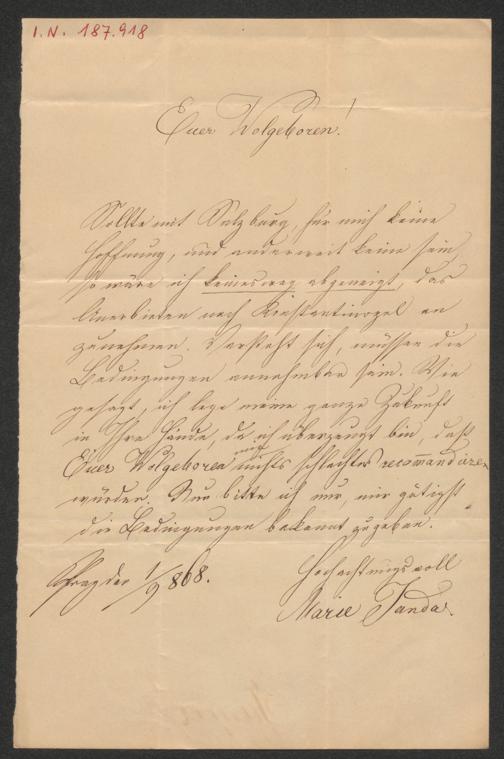 I. N. 187.918
Euer Wolgeboren!
Sollte mit Salzburg, für mich keine
Hoffnung, und anderweit keine sein,
so wäre ich keinesweg abgeneigt, das
Anerbieten nach Konstantinopel an
zunehmen. Versteht sich, müssen die
Bedingungen annehmbar sein. Wie
gesagt, ich lege meine ganze Zukunft
in Ihre Hände, da ich überzeugt bin, daß
Euer Wolgeboren mir nichts schlechtes recommandiren
würden. Nun bitte ich nur, mir gütigst
die Bedingungen bekannt zu geben.
Hochachtungsvoll
Prag den 1/9 868.
Marie Janda